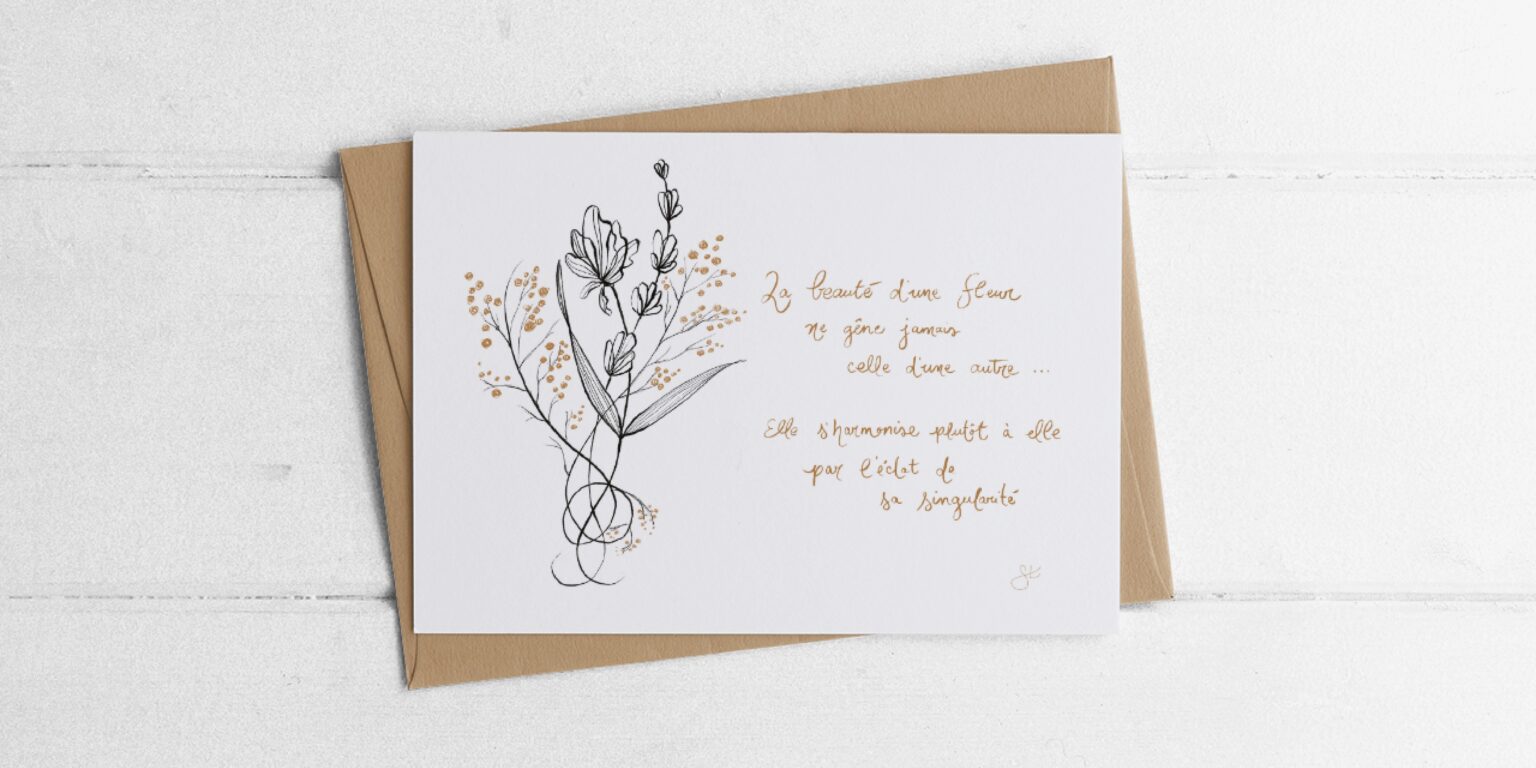 La beauté d'une fleur
ne gêne jamais
celle d'une autre ...
Elle s'harmonise plutôt à elle
par l'éclat de
sa singularité